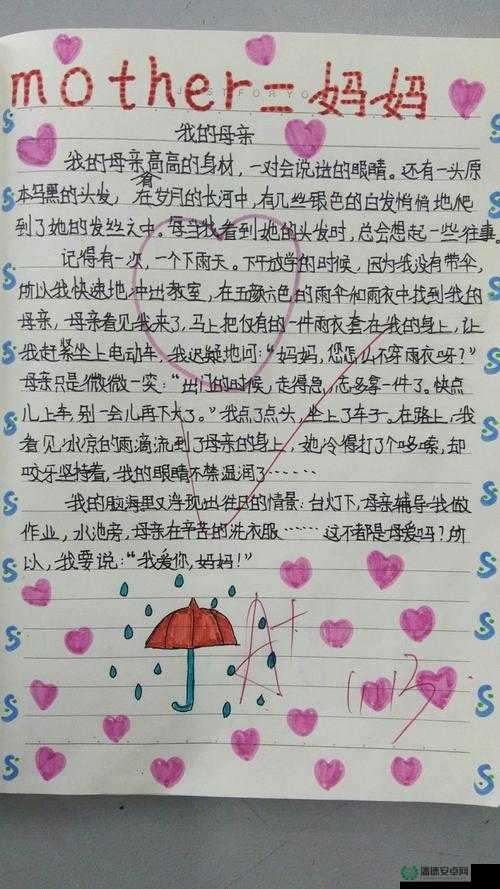 mother=妈妈
JUST FOR YOU
我的母亲
我的母亲高高的身材，一对会说话的眼睛。还有一头原
本乌黑的头发，在岁月的长河中，有几丝银色的白发悄悄地爬
到了她的发丝之中。每当我看到她的头发时，总会想起一些往事。
记得有一次，一个下雨天。下午放学的时候，因为我没有带伞，
所以我快速地冲出教室，在五颜六色的雨伞和雨衣中找到我的
母亲，母亲看见我来了，马上把仅有的一件雨衣套在我的身上，让
我赶紧坐上电动车，我迟疑地问：“妈妈，您怎么不穿雨衣呀？”
母亲只是微微一笑：“出门的时候，走得急，忘多拿一件了。快点
儿上车，别一会儿再下大了。”我点了点头，坐上了车子。在路上，我
看见冰凉的雨滴流到了母亲的身上，她冷得打了个哆嗦，却
咬牙坚持着，我的眼睛不禁湿润了……
我的脑海里又浮现出往日的情景：台灯下，母亲辅导我做
作业，水池旁，母亲在辛苦的洗衣服……这不都是母爱吗？所
以，我要说：“我爱你，妈妈！”
A+
潘德安卓网